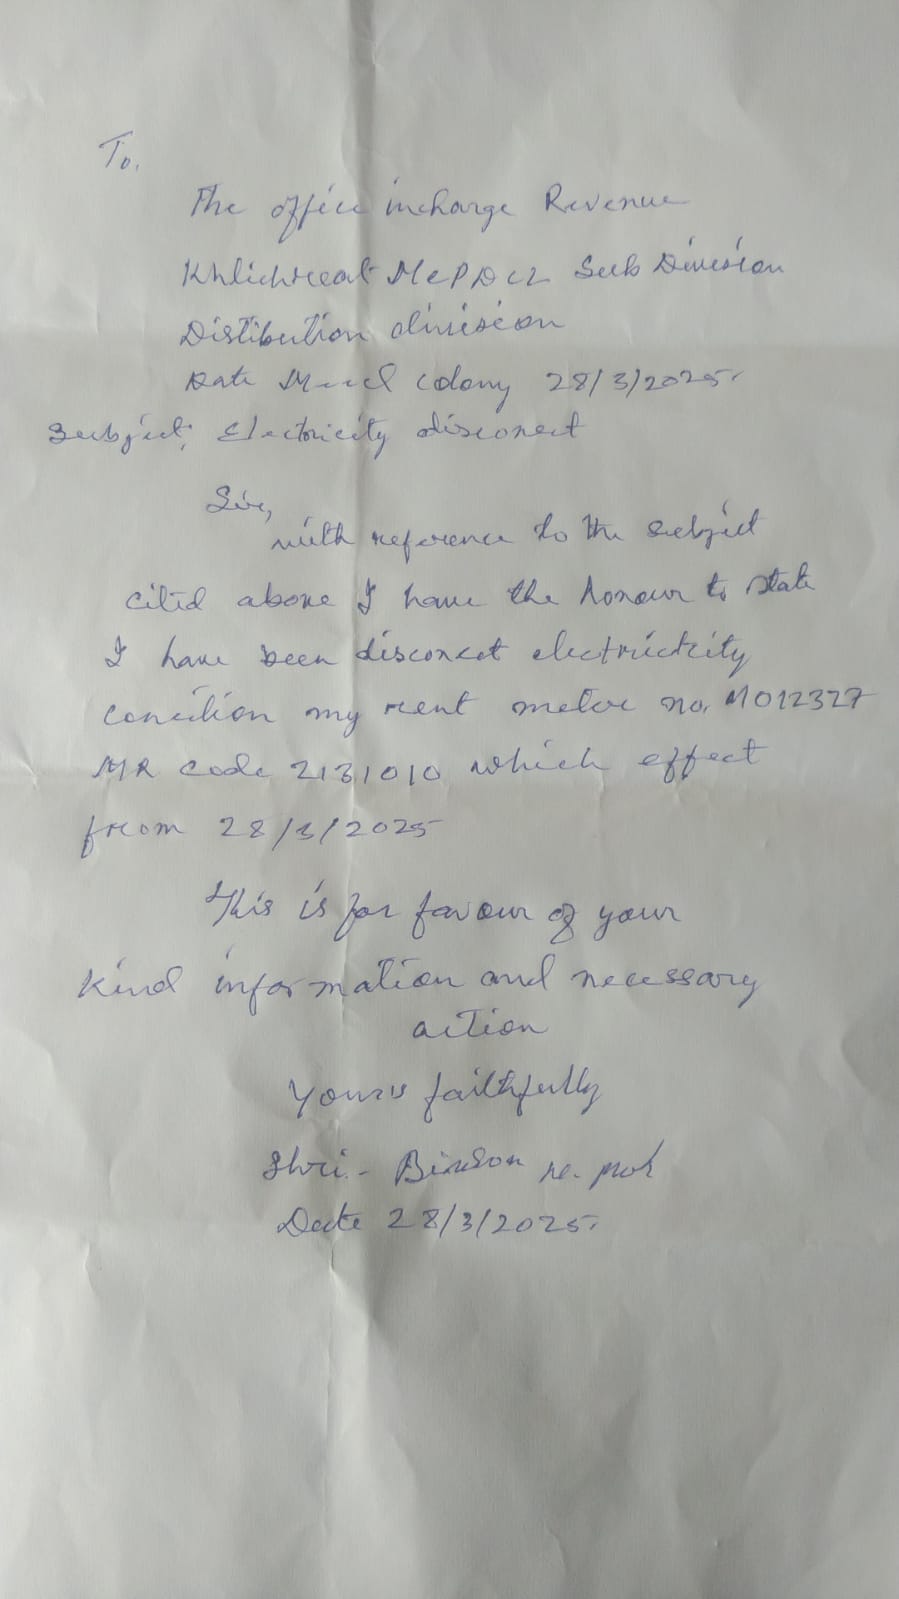 To,
The office incharge Revenue
Khlichreat MePDCL Sub Division
Distibution division
Date colony 28/3/2025.
Subject; Electricity disconect
Sir,
with reference to the subject
cited above I have the honour to state
I have been disconect electrictcity
my rent meter no. M012327
MR code 2131010 which effect
from 28/3/2025
This is for favour of your
kind information and necessary
action
Yours faithfully
Shri.-
Date 28/3/2025.